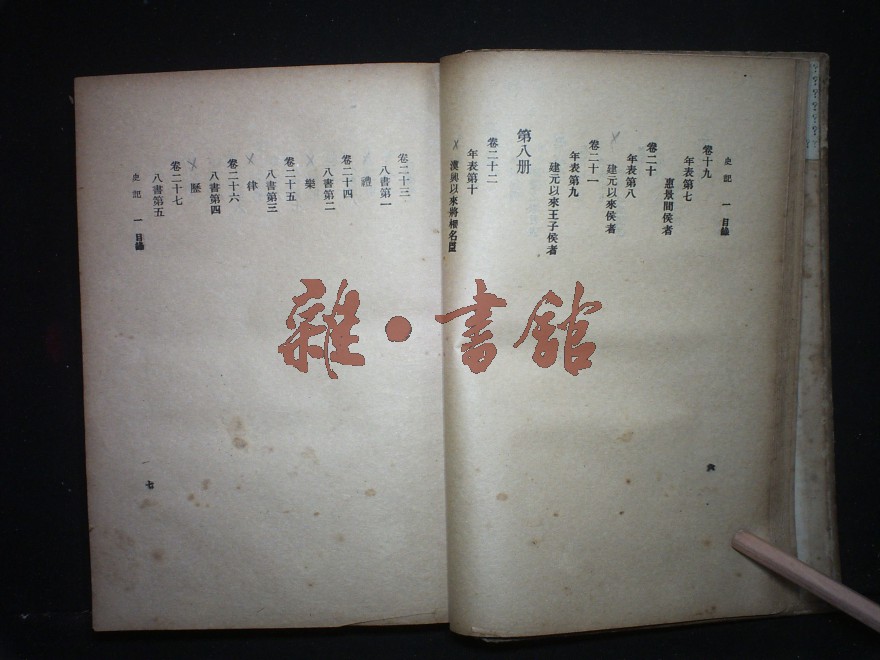 史記 一 目錄
卷十九
年表第七
惠景間侯者
卷二十
年表第八
建元以來侯者
卷二十一
年表第九
建元以來王子侯者
第八册
卷二十二
年表第十
漢興以來將相名臣
六
卷二十三
八書第一
禮
卷二十四
八書第二
樂
卷二十五
八書第三
律
卷二十六
八書第四
歷
卷二十七
八書第五
史記 一 目錄
七
雜·書館